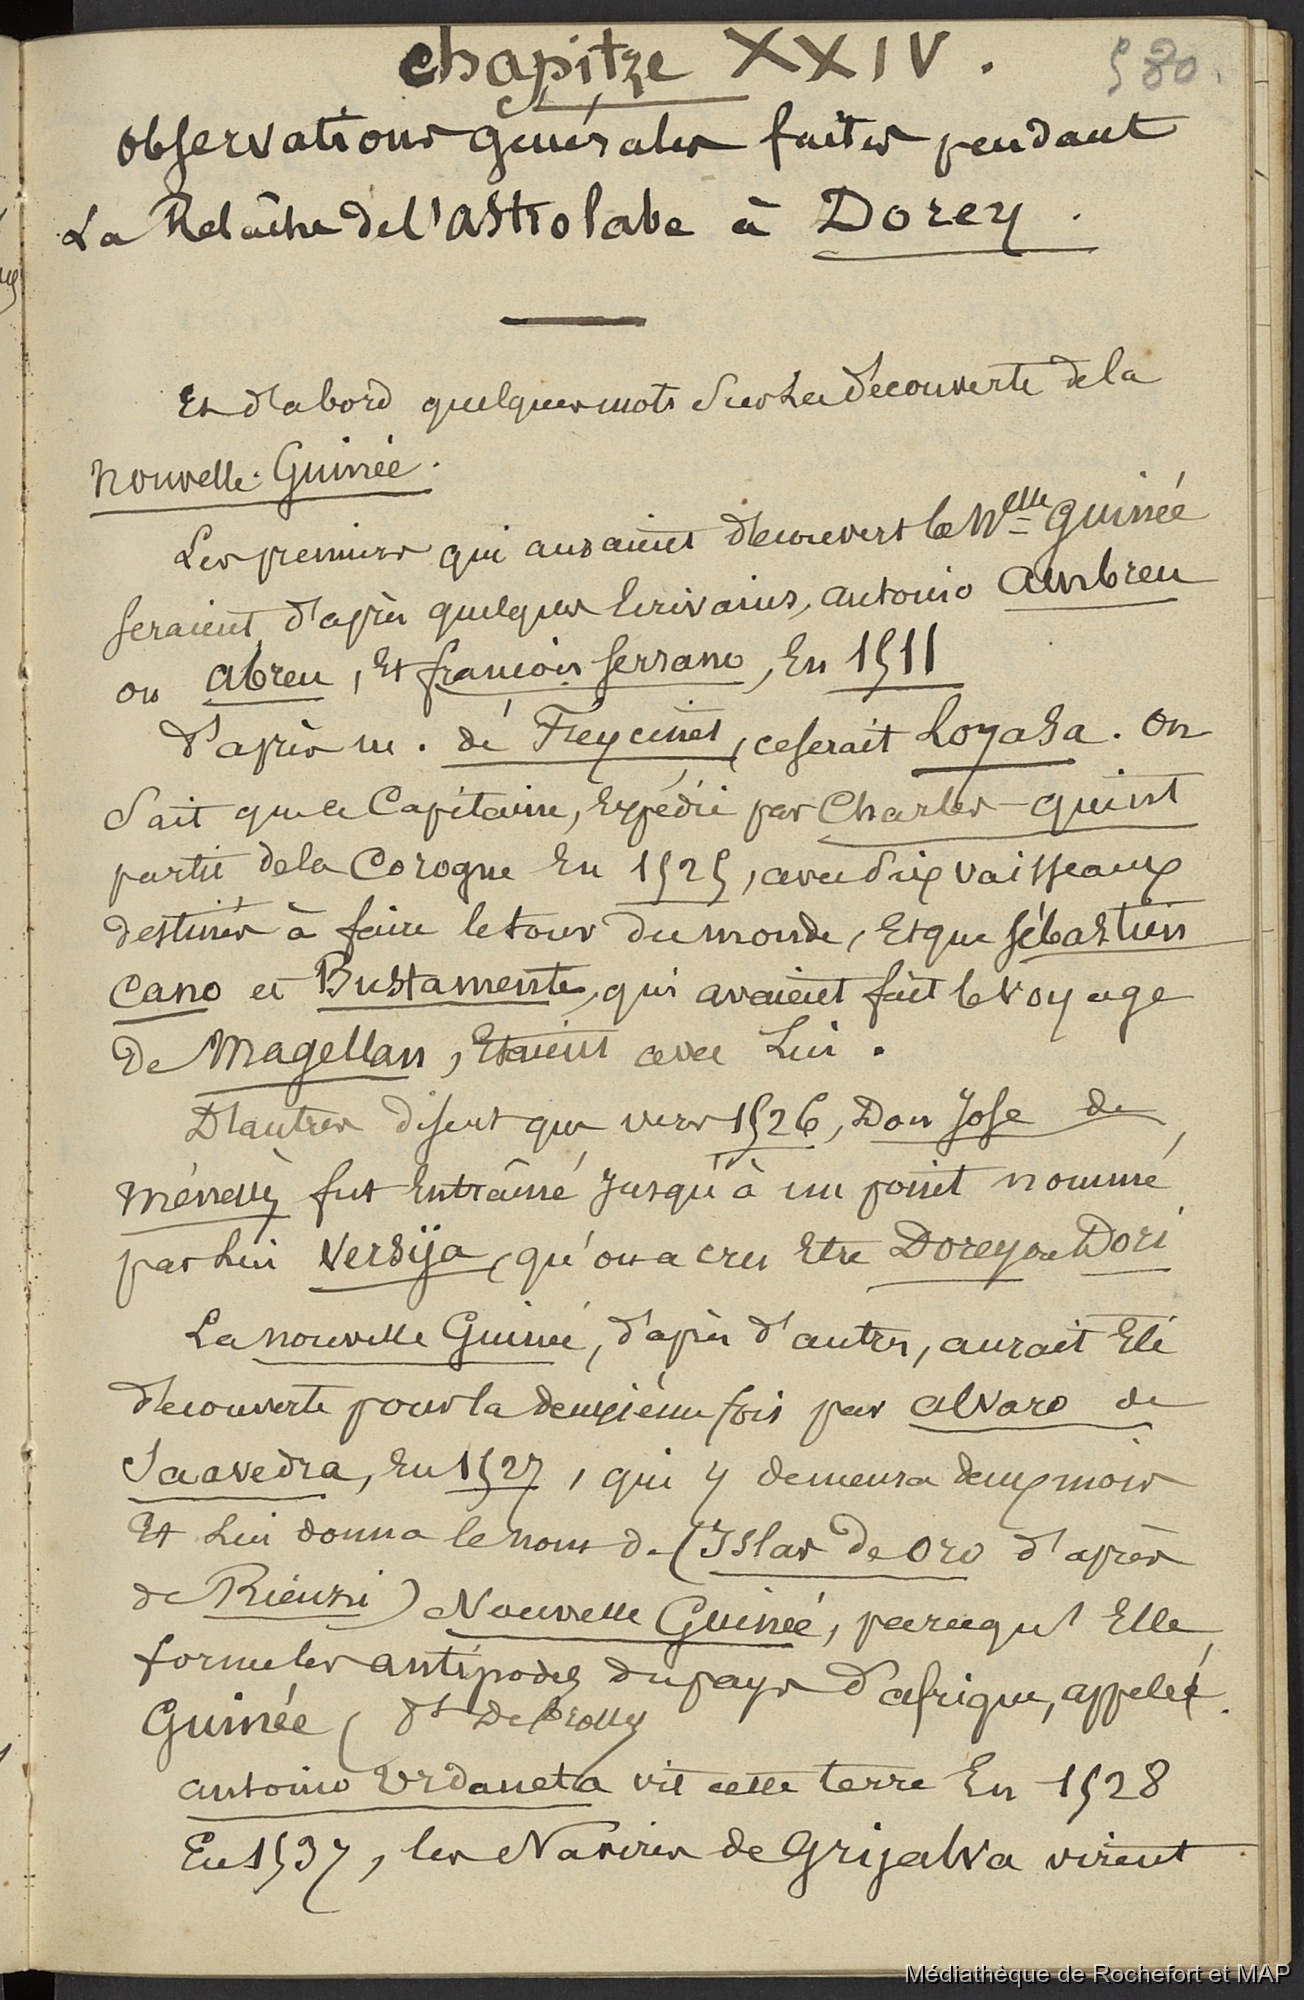 580.
chapitre XXIV.
observations générales faites pendant
La Relâche de l'astrolabe à Dorey.
Et d'abord quelques mots sur La découverte de la
Nouvelle-Guinée.
Les premiers qui auraient découvert la Nlle Guinée
seraient d'après quelques Ecrivains, antonio Ambreu
ou Abreu, Et françois Serrano, En 1511
d'après m. de Freycinet, ce serait Loyasa. on
sait que ce Capitaine, Expédié par Charles-quint
partit de la Corogne En 1525, avec six vaisseaux
destinés à faire le tour du monde, Et que Sébastien
Cano et Bustamente, qui avaient fait le voyage
de Magellan, Etaient avec Lui.
D'autres disent que vers 1526, Don Jose de
Ménesès fut Entraîné Jusqu'à un point nommé
par Lui Versija, qu'on a cru Etre Dorey ou Dori
La nouvelle Guinée, d'après d'autres, aurait Eté
découverte pour la deuxième fois par alvaro de
Saavedra, En 1527, qui y demeura deux mois
Et Lui donna le nom de (Islas de Oro d'après
de Rienzi) Nouvelle Guinée, parcequ'Elle
forme les antipodes du pays d'afrique, appelé
Guinée, dt De Brosses
antonio Urdaneta vit cette terre En 1528
En 1537, les Navires de Grijalva virent
Médiathèque de Rochefort et MAP